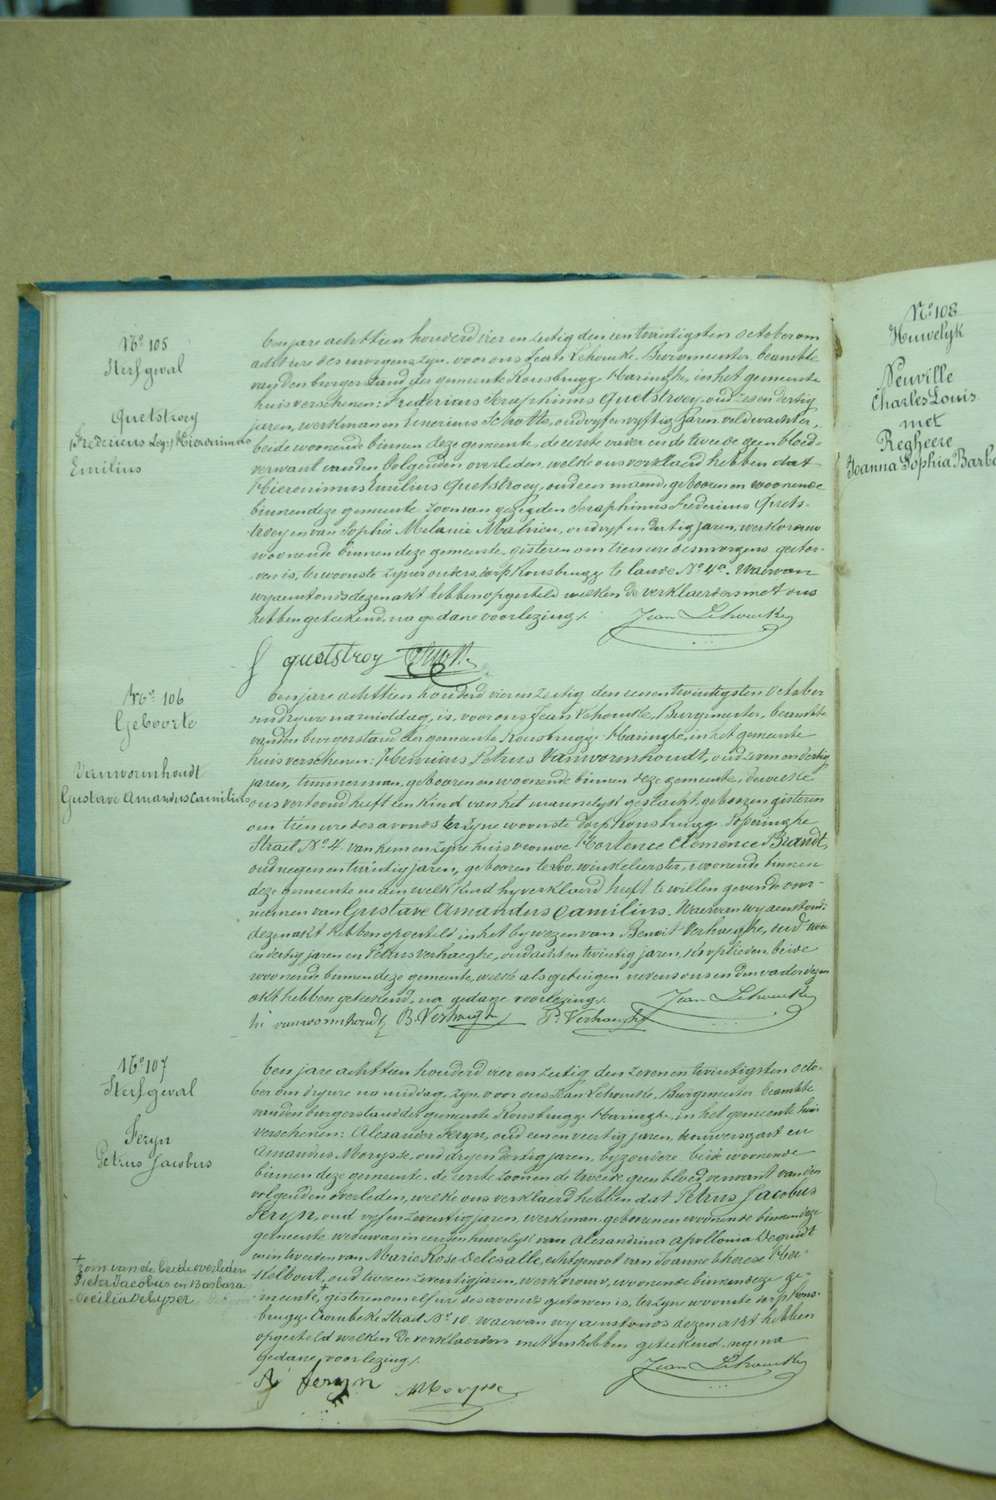 Nº 105
Sterfgeval
Quetstroey
Frederieus Hieronimus
Emilius
Een jare achttien honderd vier en zestig den een twintigsten october om
acht ure des morgens zyn voor ons Jean Lehoucke Burgmeester beambte
van den burgerstand der gemeente Rousbrugge Haringhe, in het gemeente
huis verschenen: Frederieus Seraphinus Quetstroey, oud zes en dertig
jaren, werkman en Schotte, oud vyf en vyftig jaren, veldwachter,
beide woonende binnen deze gemeente, de eerste vader en de tweede geen bloed-
verwant van den volgenden overleden, welke ons verklaerd hebben dat
Hieronimus Emilius Quetstroey, oud een maend, geboren en woonende
binnen deze gemeente, zoon van gezegden Seraphinus Frederieus Quets-
troey en van Sophie Melanie Mahieu, oud vyf en dertig jaren, werkvrouw
woonende binnen deze gemeente, gisteren om tien ure des morgens gestor-
ven is, ter woonste zyner ouders, dorp Rousbrugge te lande Nº 4c. Waervan
wy aenstonds dezen akt hebben opgesteld welken de verklaerders met ons
hebben geteekend, na gedane voorlezing.
Jean Lehoucke
f quetstroey
Nº 106
Geboorte
Vanwormhoudt
Gustave Amandus Camilius
Een jare achttien honderd vier en zestig den een en twintigsten October
om dry ure namiddag, is, voor ons Jean Lehoucke, Burgmeester, beambte
van den burgerstand der gemeente Rousbrugge Haringhe, in het gemeente
huis verschenen: Henricus Petrus Vanwormhoudt, oud zeven en dertig
jaren, timmerman, geboren en woonende binnen deze gemeente, dewelke
ons vertoond heeft een kind van het mannelyk geslacht, geboren gisteren
om tien ure des avonds ter zyne woonste dorp Rousbrugge Poperinghe
Straet Nº 4 van hem en zyne huisvrouwe Hortence Clemence Brandt,
oud negen en twintig jaren, geboren te Loo, winkelierster, woonende binnen
deze gemeente en aen welk kind hy verklaerd heeft te willen geven de voor-
namen van Gustave Amandus Camilius. Waervan wy aenstonds
dezen akt hebben opgesteld in het bywezen van Benoit Verhaeghe, oud
en dertig jaren en Petrus Verhaeghe, oud acht en twintig jaren, kooplieden beide
woonende binnen deze gemeente, welke als getuigen nevens ons en den vader dezen
akt hebben geteekend, na gedane voorlezing.
Jean Lehoucke
h vanwormhoudt B. Verhaeghe P. Verhaeghe
Nº 107
Sterfgeval
Feryn
Petrus Jacobus
Een jare achttien honderd vier en zestig den zeven en twintigsten octo-
ber om dry ure na middag, zyn voor ons Jean Lehoucke, Burgmeester beambte
van den burgerstand der gemeente Rousbrugge Haringhe, in het gemeente huis
verschenen: Alexander Feryn, oud een en veertig jaren, en
Amandus Morysse, oud dry en dertig jaren, byzondere beide woonende
binnen deze gemeente, de eerste zoon en de tweede geen bloedverwant van den
volgenden overleden, welke ons verklaerd hebben dat Petrus Jacobus
Feryn, oud vyf en zeventig jaren, werkman, geboren en woonende binnen deze
gemeente weduwaer in eersten huwelyk van Alexandrina Apollonia Degrudt
en in tweeden van Marie Rose Delesalle, echtgenoot van Joanne Therese
Kelbout, oud twee en zeventig jaren, werkvrouw, woonende binnen deze ge-
meente,+ gisteren om elf ure des avonds gestorven is, ter zyne woonste dorp Rous-
brugge Crombeke Straet Nº 10. Waervan wy aenstonds dezen akt hebben
opgesteld welken de verklaerders met ons hebben geteekend na
gedane voorlezing.
Jean Lehoucke
+ zoon van de beide overleden
Pieter Jacobus en Barbara
Cecilia Delyser
A feryn A Morysse
Nº 108
Huwelyk
Neuville
Charles Louis
met
Regheere
Joanna Sophia Barb